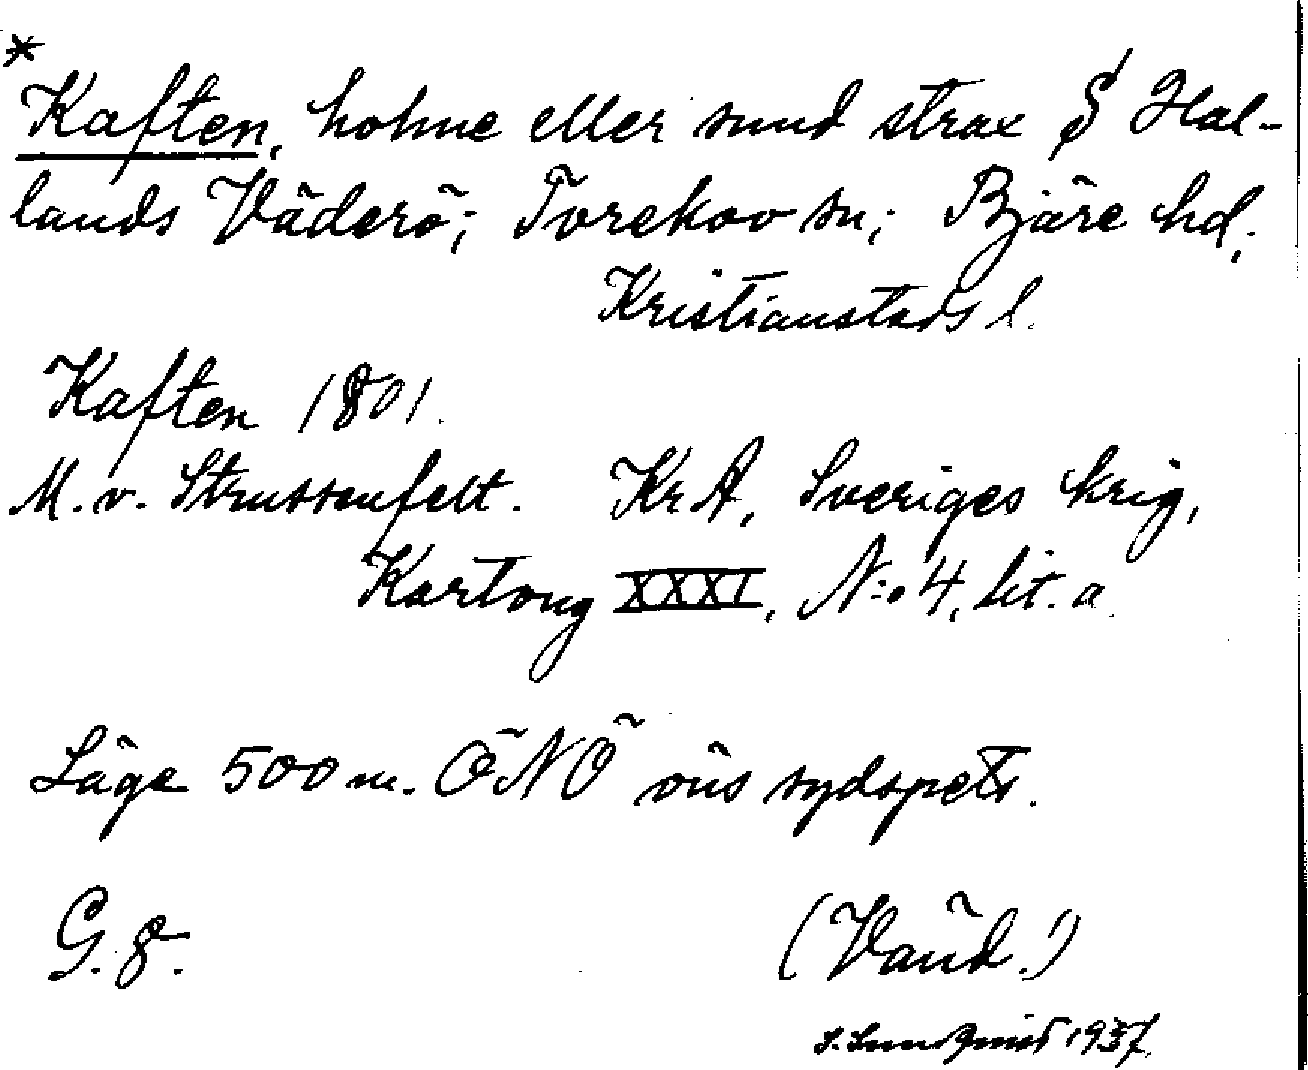 *
Kaften, holme eller sund strax S Hal-
lands Väderö; Torekov sn; Bjäre hd;
Kristianstads l.
Kaften 1801.
M. v. Strussenfelt. KrA, Sveriges krig,
Kartong XXXI, N:o 4, lit. a.
Läge 500 m. ÖNÖ öns sydspets.
G. 8.
(Vänd!)
S. Lundqvist 1937.